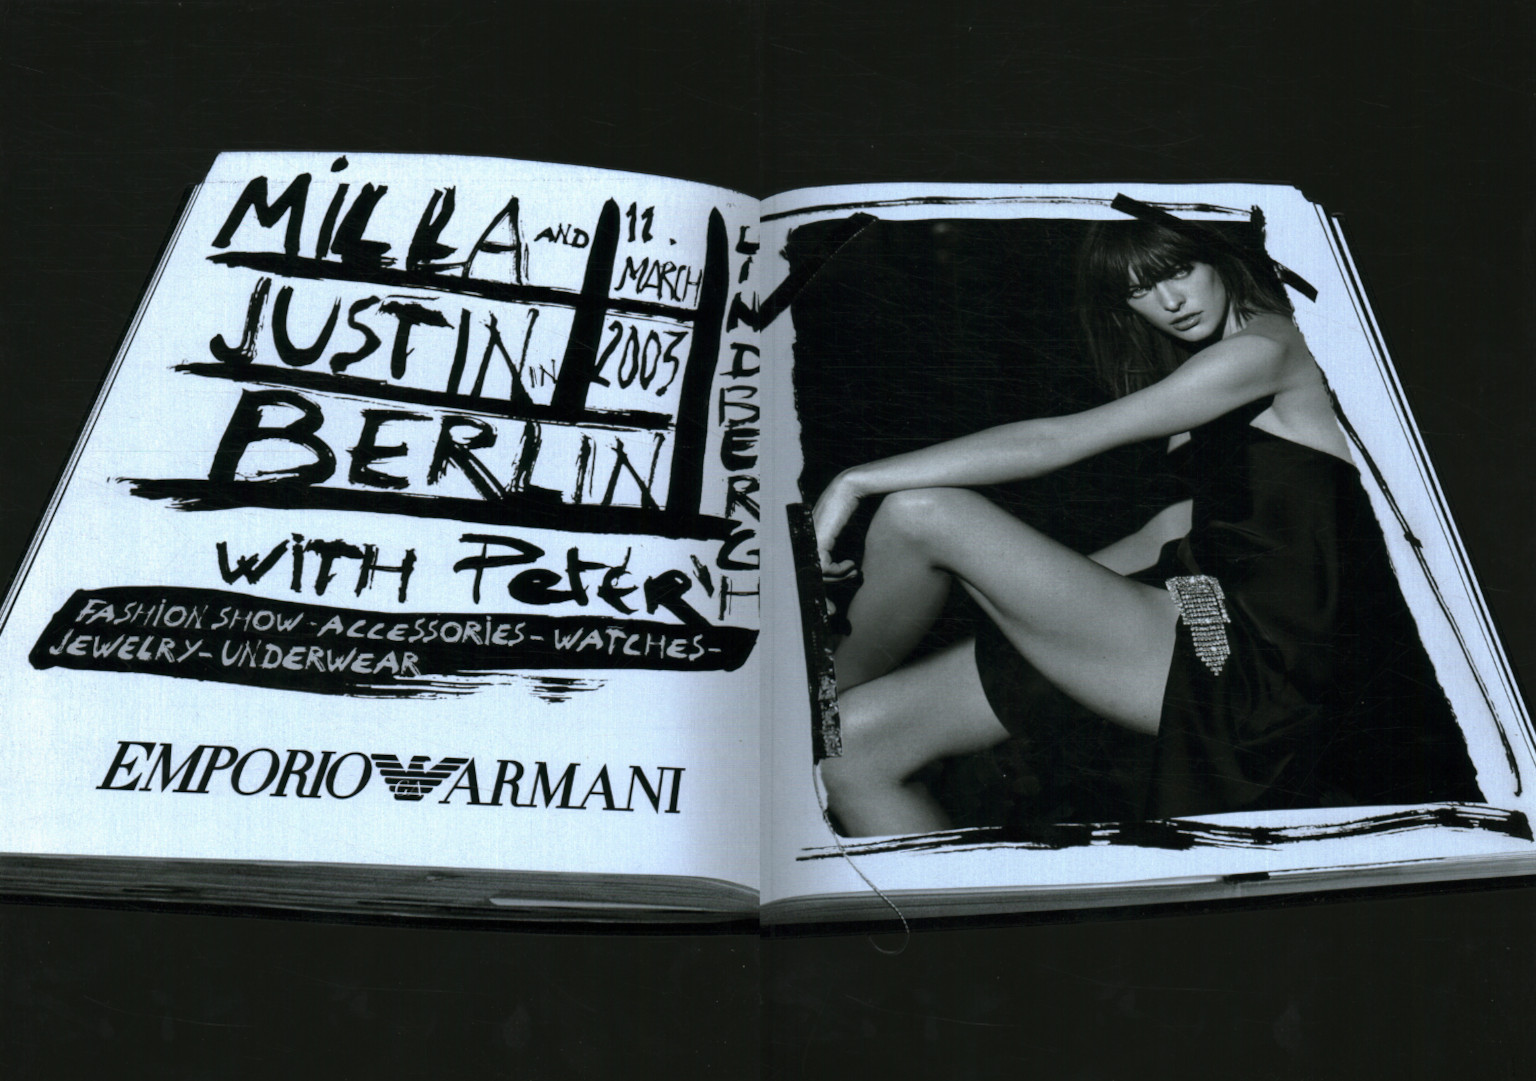 MILLA AND 11.
MARCH
JUSTIN IN 2003
BERLIN
WITH PETER
LINDBERGH
FASHION SHOW - ACCESSORIES - WATCHES -
JEWELRY - UNDERWEAR
EMPORIO ARMANI